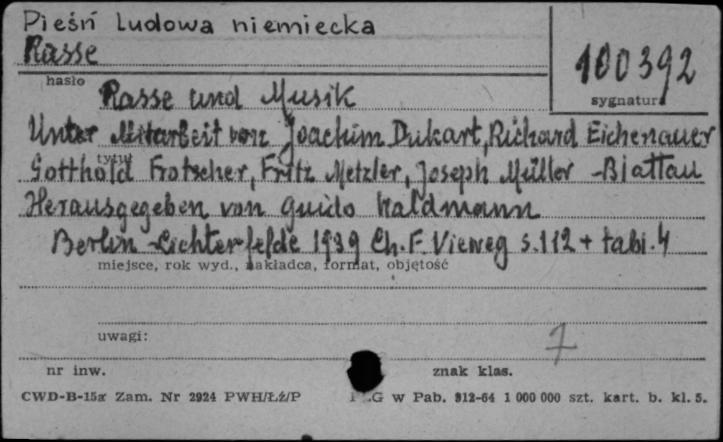 Pieśń Ludowa niemiecka
Rasse
100392
hasło
sygnatura
Rasse und Musik
Unter Mitarbeit von Joachim Dukart, Richard Eichenauer
tytuł
Gotthold Frotscher, Fritz Metzler, Joseph Müller-Blattau
Herausgegeben von Guido Waldmann
Berlin-Lichterfelde 1939 Ch. F. Vieweg s. 112 + tabl. 4
miejsce, rok wyd., nakładca, format, objętość
uwagi:
7
nr inw.
znak klas.
CWD-B-15a Zam. Nr 2924 PWH/Łź/P
w Pab. 812-64 1 000 000 szt. kart. b. kl. 5.